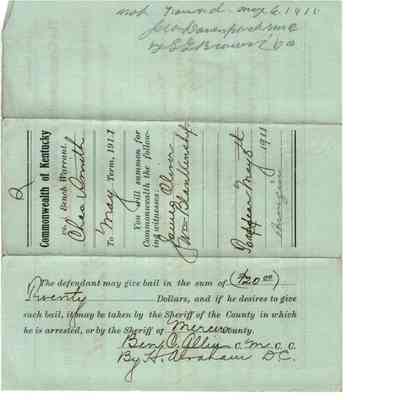 not found May 6 1911
Commonwealth of Kentucky
vs. Bench Warrant.
Chas Smith
To May Term, 1911
You will summon for
Commonwealth the follow-
ing witnesses:
James Oliver
Wm Blantenship
To appear May 8th
1911
The defendant may give bail in the sum of ($20.00)
Twenty Dollars, and if he desires to give
such bail, it may be taken by the Sheriff of the County in which
he is arrested, or by the Sheriff of Mercer County.
Ben C. Allin C. M. C. C.
By H. Abraham D.C.